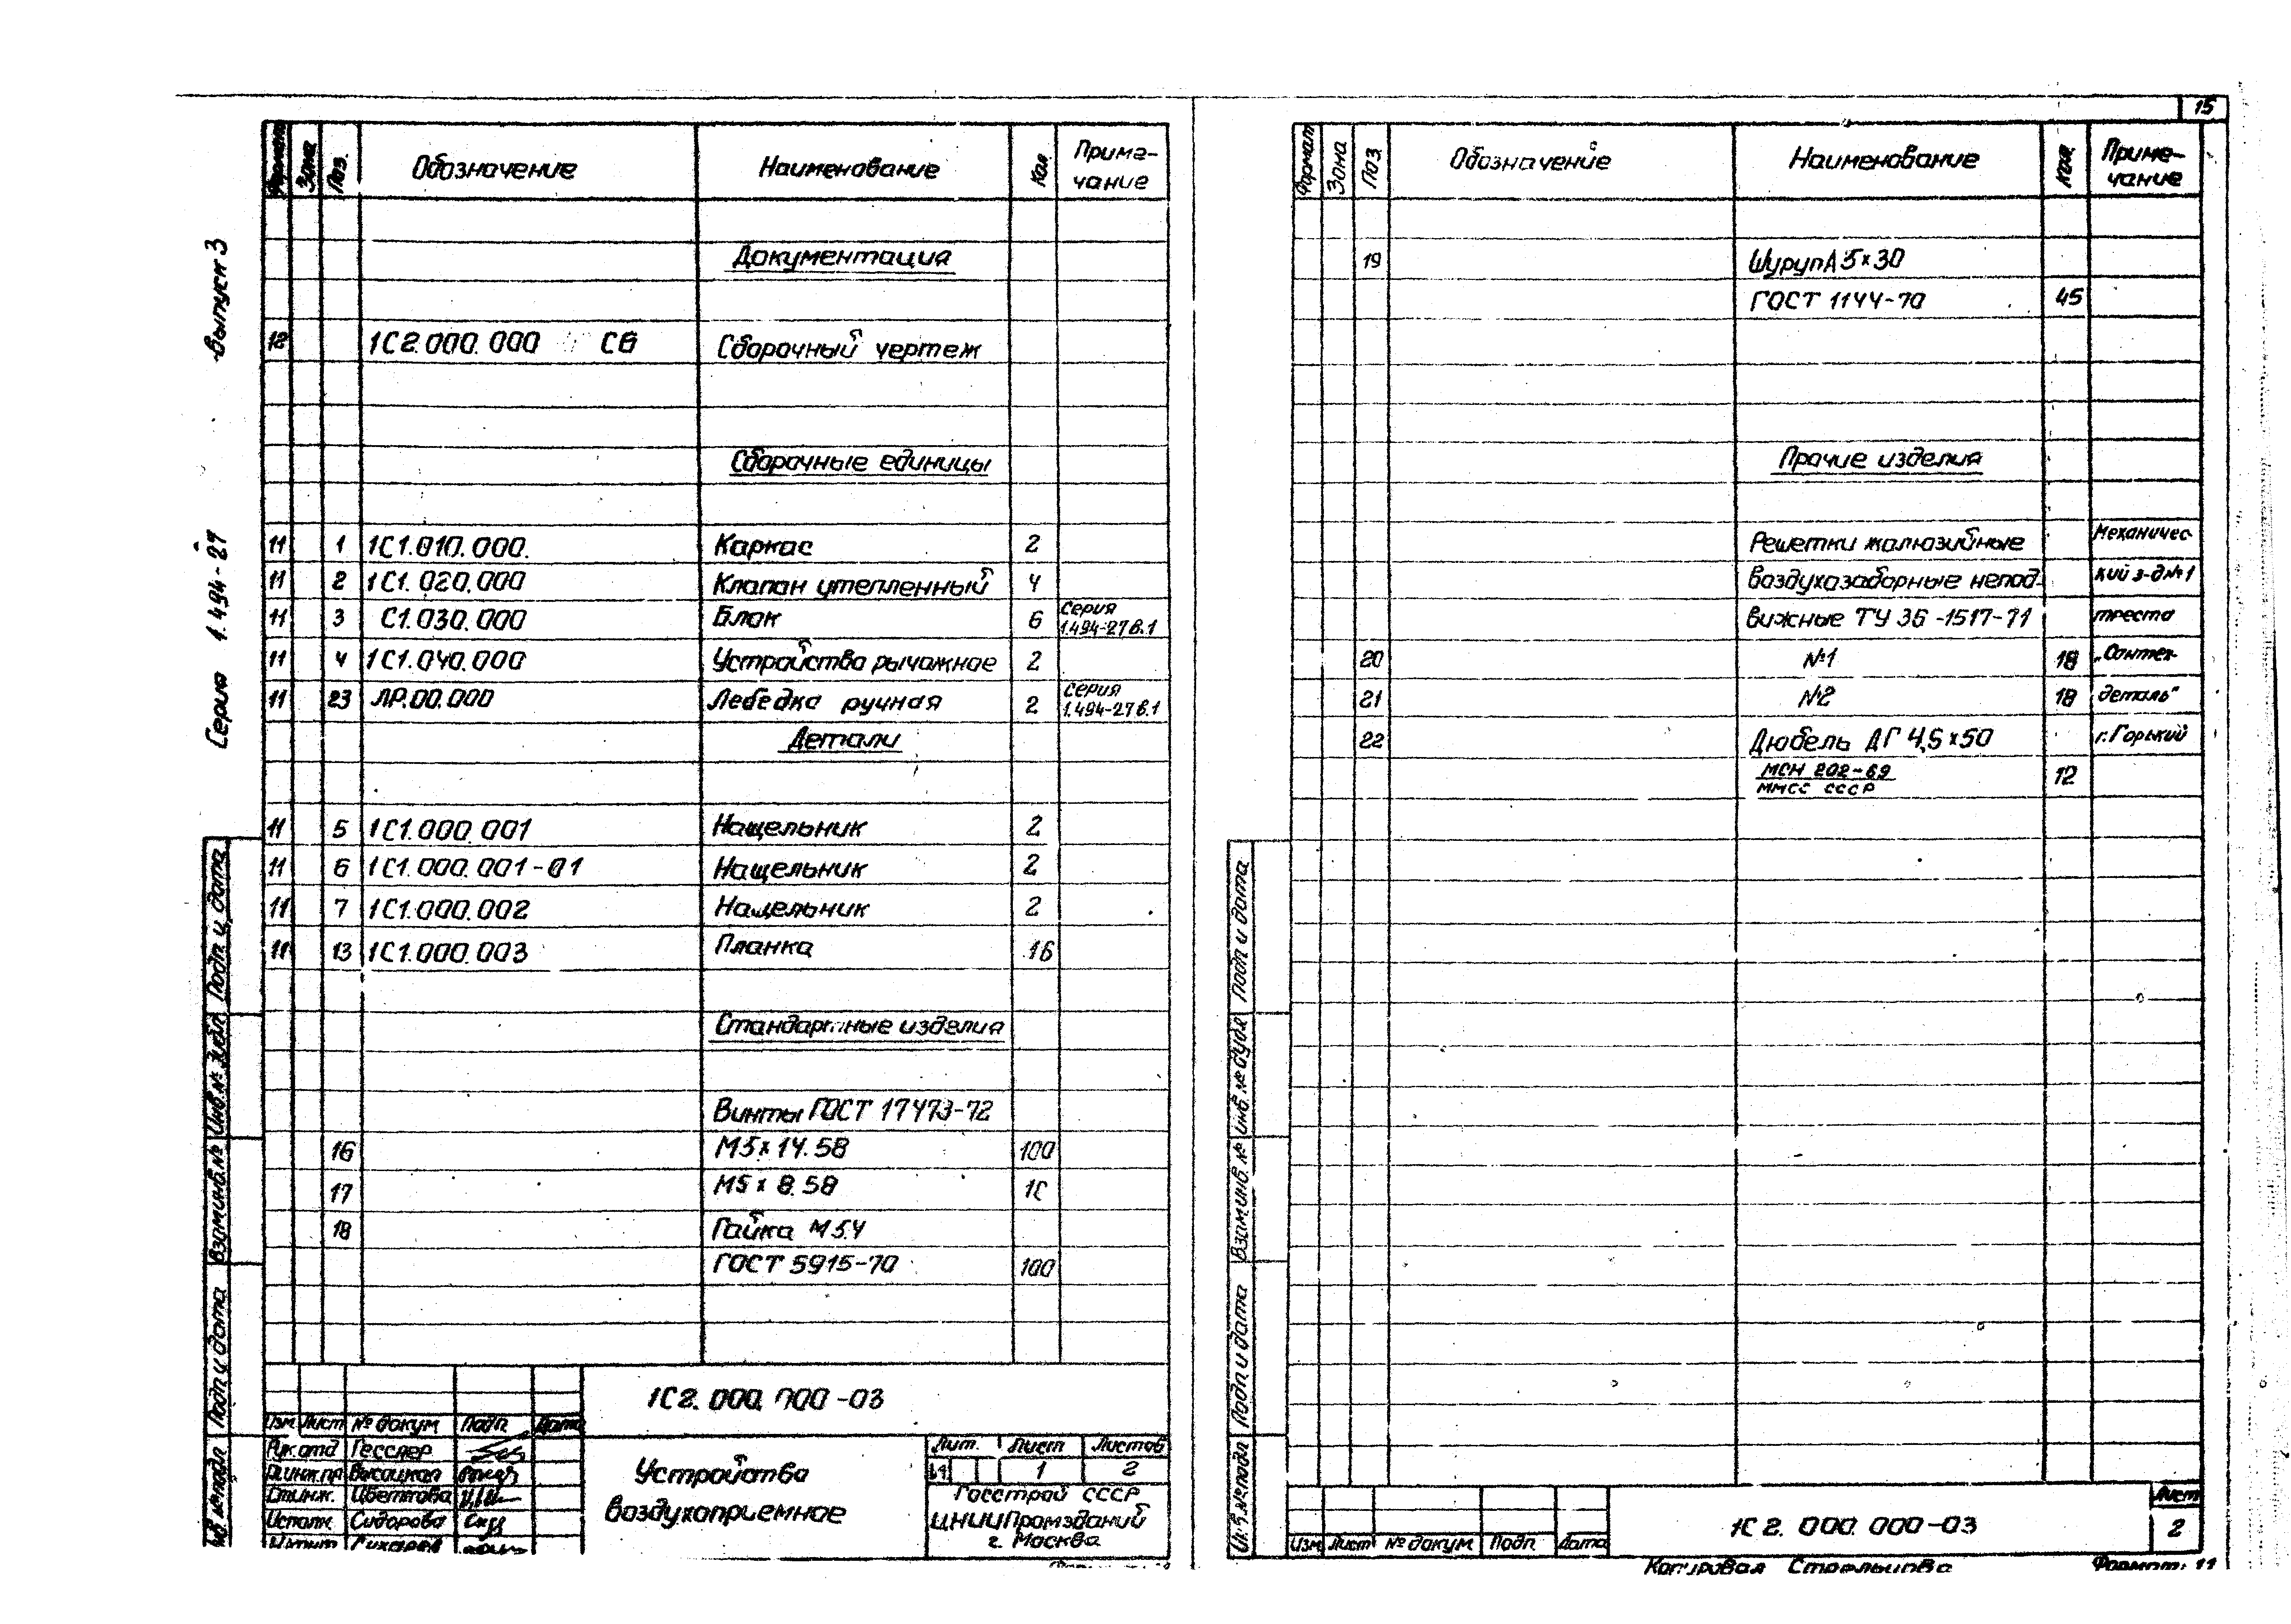 Серия 1.494-27 выпуск 3
Формат Зона Поз. Обозначение Наименование Кол. Приме-
чание
Документация
12 1С2.000.000 СБ Сборочный чертеж
Сборочные единицы
11 1 1С1.010.000. Каркас 2
11 2 1С1.020.000 Клапан утепленный 4
11 3 С1.030.000 Блок 6 Серия
1.494-27 в.1
11 4 1С1.040.000 Устройство рычажное 2
11 23 ЛР.00.000 Лебедка ручная 2 Серия
1.494-27 в.1
Детали
11 5 1С1.000.001 Нащельник 2
11 6 1С1.000.001-01 Нащельник 2
11 7 1С1.000.002 Нащельник 2
11 13 1С1.000.003 Планка 16
Стандартные изделия
Винты ГОСТ 17473-72
16 М5×14.58 100
17 М5×8.58
18 Гайка М5.4
ГОСТ 5915-70 100
Инв.№подл Подп и дата Взам инв.№ Инв.№ дубл. Подп и дата
1С2.000.000-03
Изм Лист № докум Подп. Дата
Рук.отд Гесслер
Высоцкая
Ст.инж. Цветкова
Исполн. Сидорова
Устройство
воздухоприемное
Лит. Лист Листов
1 2
Госстрой СССР
ЦНИИПромзданий
г. Москва
15
Формат Зона Поз Обозначение Наименование Кол. Приме-
чание
19 Шуруп А 5×30
ГОСТ 1144-70 45
Прочие изделия
Решетки жалюзийные Механичес-
воздухозаборные непод- кий з-д №1
вижные ТУ 36-1517-71 треста
20 №1 18 „Сантех-
21 №2 18 деталь"
22 Дюбель ДГ 4,5×50 г.Горький
МСН 202-69
ММСС СССР 12
Инв.№подл Подп и дата Взам.инв.№ Инв.№ дубл Подп и дата
Изм Лист № докум Подп Дата
1С2.000.000-03
Лист
2
Копировал Стрельцова Формат: 11